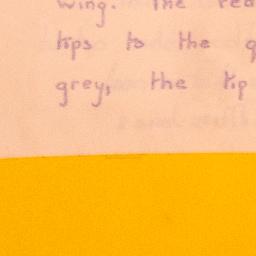 wing. The rea
tips to the q
grey, the tip